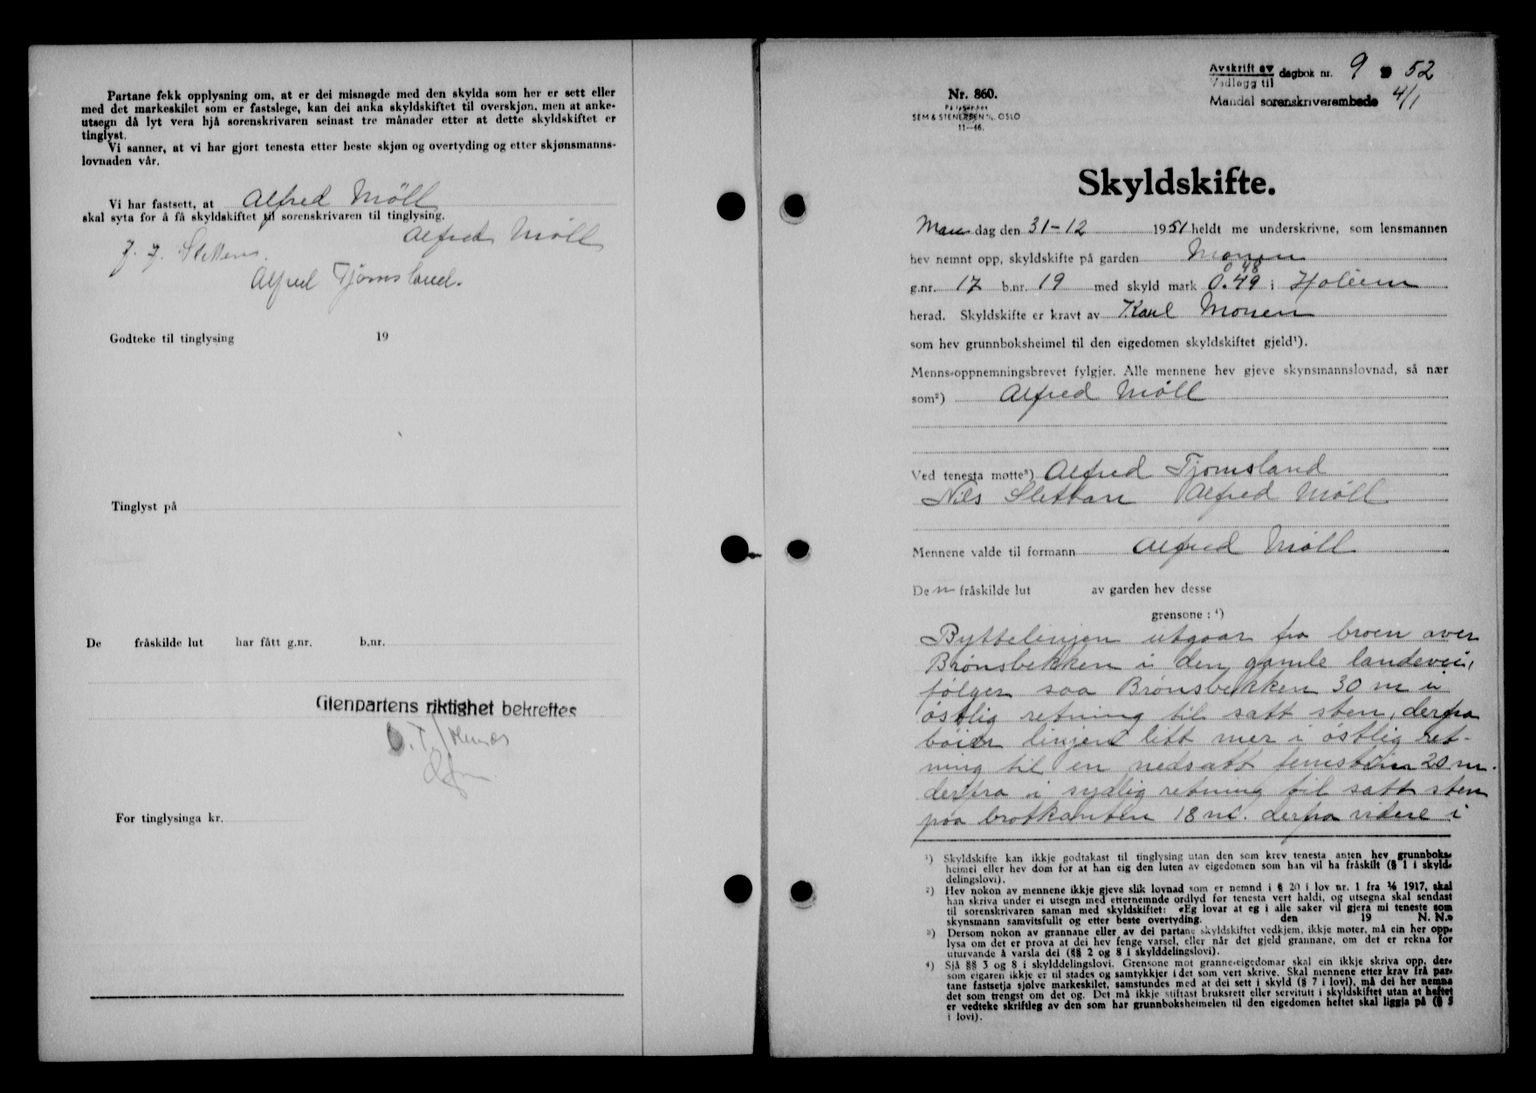 Partane fekk opplysning om, at er dei misnøgde med den skylda som her er sett eller
med det markeskilet som er fastslege, kan dei anka skyldskiftet til overskjøn, men at anke-
utsegn då lyt vera hjå sorenskrivaren seinast tre månader etter at dette skyldskiftet er
tinglyst.
Vi sanner, at vi har gjort tenesta etter beste skjøn og overtyding og etter skjønsmanns-
lovnaden vår.
Vi har fastsett, at Alfred Möll
skal syta for å få skyldskiftet til sorenskrivaren til tinglysing.
Alfred Möll
Alfred Tjomsland.
Godteke til tinglysing 19
Tinglyst på
De fråskilde lut har fått g.nr. b.nr.
Gjenpartens riktighet bekreftes
For tinglysinga kr.
Avskrift av
Vedlegg til
dagbok nr. 9 52
Mandal sorenskriverembede 4/1
Nr. 860.
SEM & STENERSEN A/S, OSLO
11—46.
Skyldskifte.
Man dag den 31-12 1951 heldt me underskrivne, som lensmannen
hev nemnt opp, skyldskifte på garden Monen
0.48
g.nr. 17 b.nr. 19 med skyld mark 0.49 i Holum
herad. Skyldskifte er kravt av Karl Monen
som hev grunnboksheimel til den eigedomen skyldskiftet gjeld¹).
Menns-oppnemningsbrevet fylgjer. Alle mennene hev gjeve skynsmannslovnad, så nær
som²) Alfred Möll
Ved tenesta møtte³) Alfred Tjomsland
Nils Slettan Alfred Möll
Mennene valde til formann Alfred Möll
De n fråskilde lut av garden hev desse
grensone : ⁴)
Byttelinjen utgaar fra broen over
Brønsbekken i den gamle landevei,
følger saa Brønsbekken 30 m i
østlig retning til satt sten, derfra
bøier linjen litt mer i østlig ret-
ning til en nedsatt 20 m.
derfra i sydlig retning til satt sten
paa brotkanten 18 m. derfra videre i
¹) Skyldskifte kan ikkje godtakast til tinglysing utan den som krev tenesta anten hev grunnboks-
heimel eller hev dom for at han eig den luten av eigedomen som han vil ha fråskilt (§ 1 i skyld-
delingslovi).
²) Hev nokon av mennene ikkje gjeve slik lovnad som er nemnd i § 20 i lov nr. 1 fra 1/6 1917, skal
han skriva under ei utsegn med etternemnde ordlyd før tenesta vert haldi, og utsegna skal sendast
til sorenskrivaren saman med skyldskiftet: «Eg lovar at eg i alle saker vil gjera mi teneste som
skynsmann samvitsfullt og etter beste overtyding. den 19 N. N.»
³) Dersom nokon av grannane eller av dei partane skyldskiftet vedkjem, ikkje møter, må ein her opp-
lysa om det er prova at dei hev fenge varsel, eller når det gjeld grannane, om det er rekna for
uturvande å varsla dei (§§ 2 og 8 i skylddelingslovi).
⁴) Sjå §§ 3 og 8 i skylddelingslovi. Grensone mot granne-eigedomar skal ein ikkje skriva opp, der-
som eigaren ikkje er til stades og samtykkjer i det som vert skrive. Skal mennene etter krav frå par-
tane fastsetja sjølve markeskilet, samstundes med at dei sett i skyld (§ 7 i lovi), må dei her nemna
det som trengst om det og. Det må ikkje stiftast bruksrett eller servitutt i skyldskiftet utan at heftet
er vedteke skriftleg av den som har grunnboksheimelen til den eigedomen heftet skal liggja på (§ 5
i lovi).